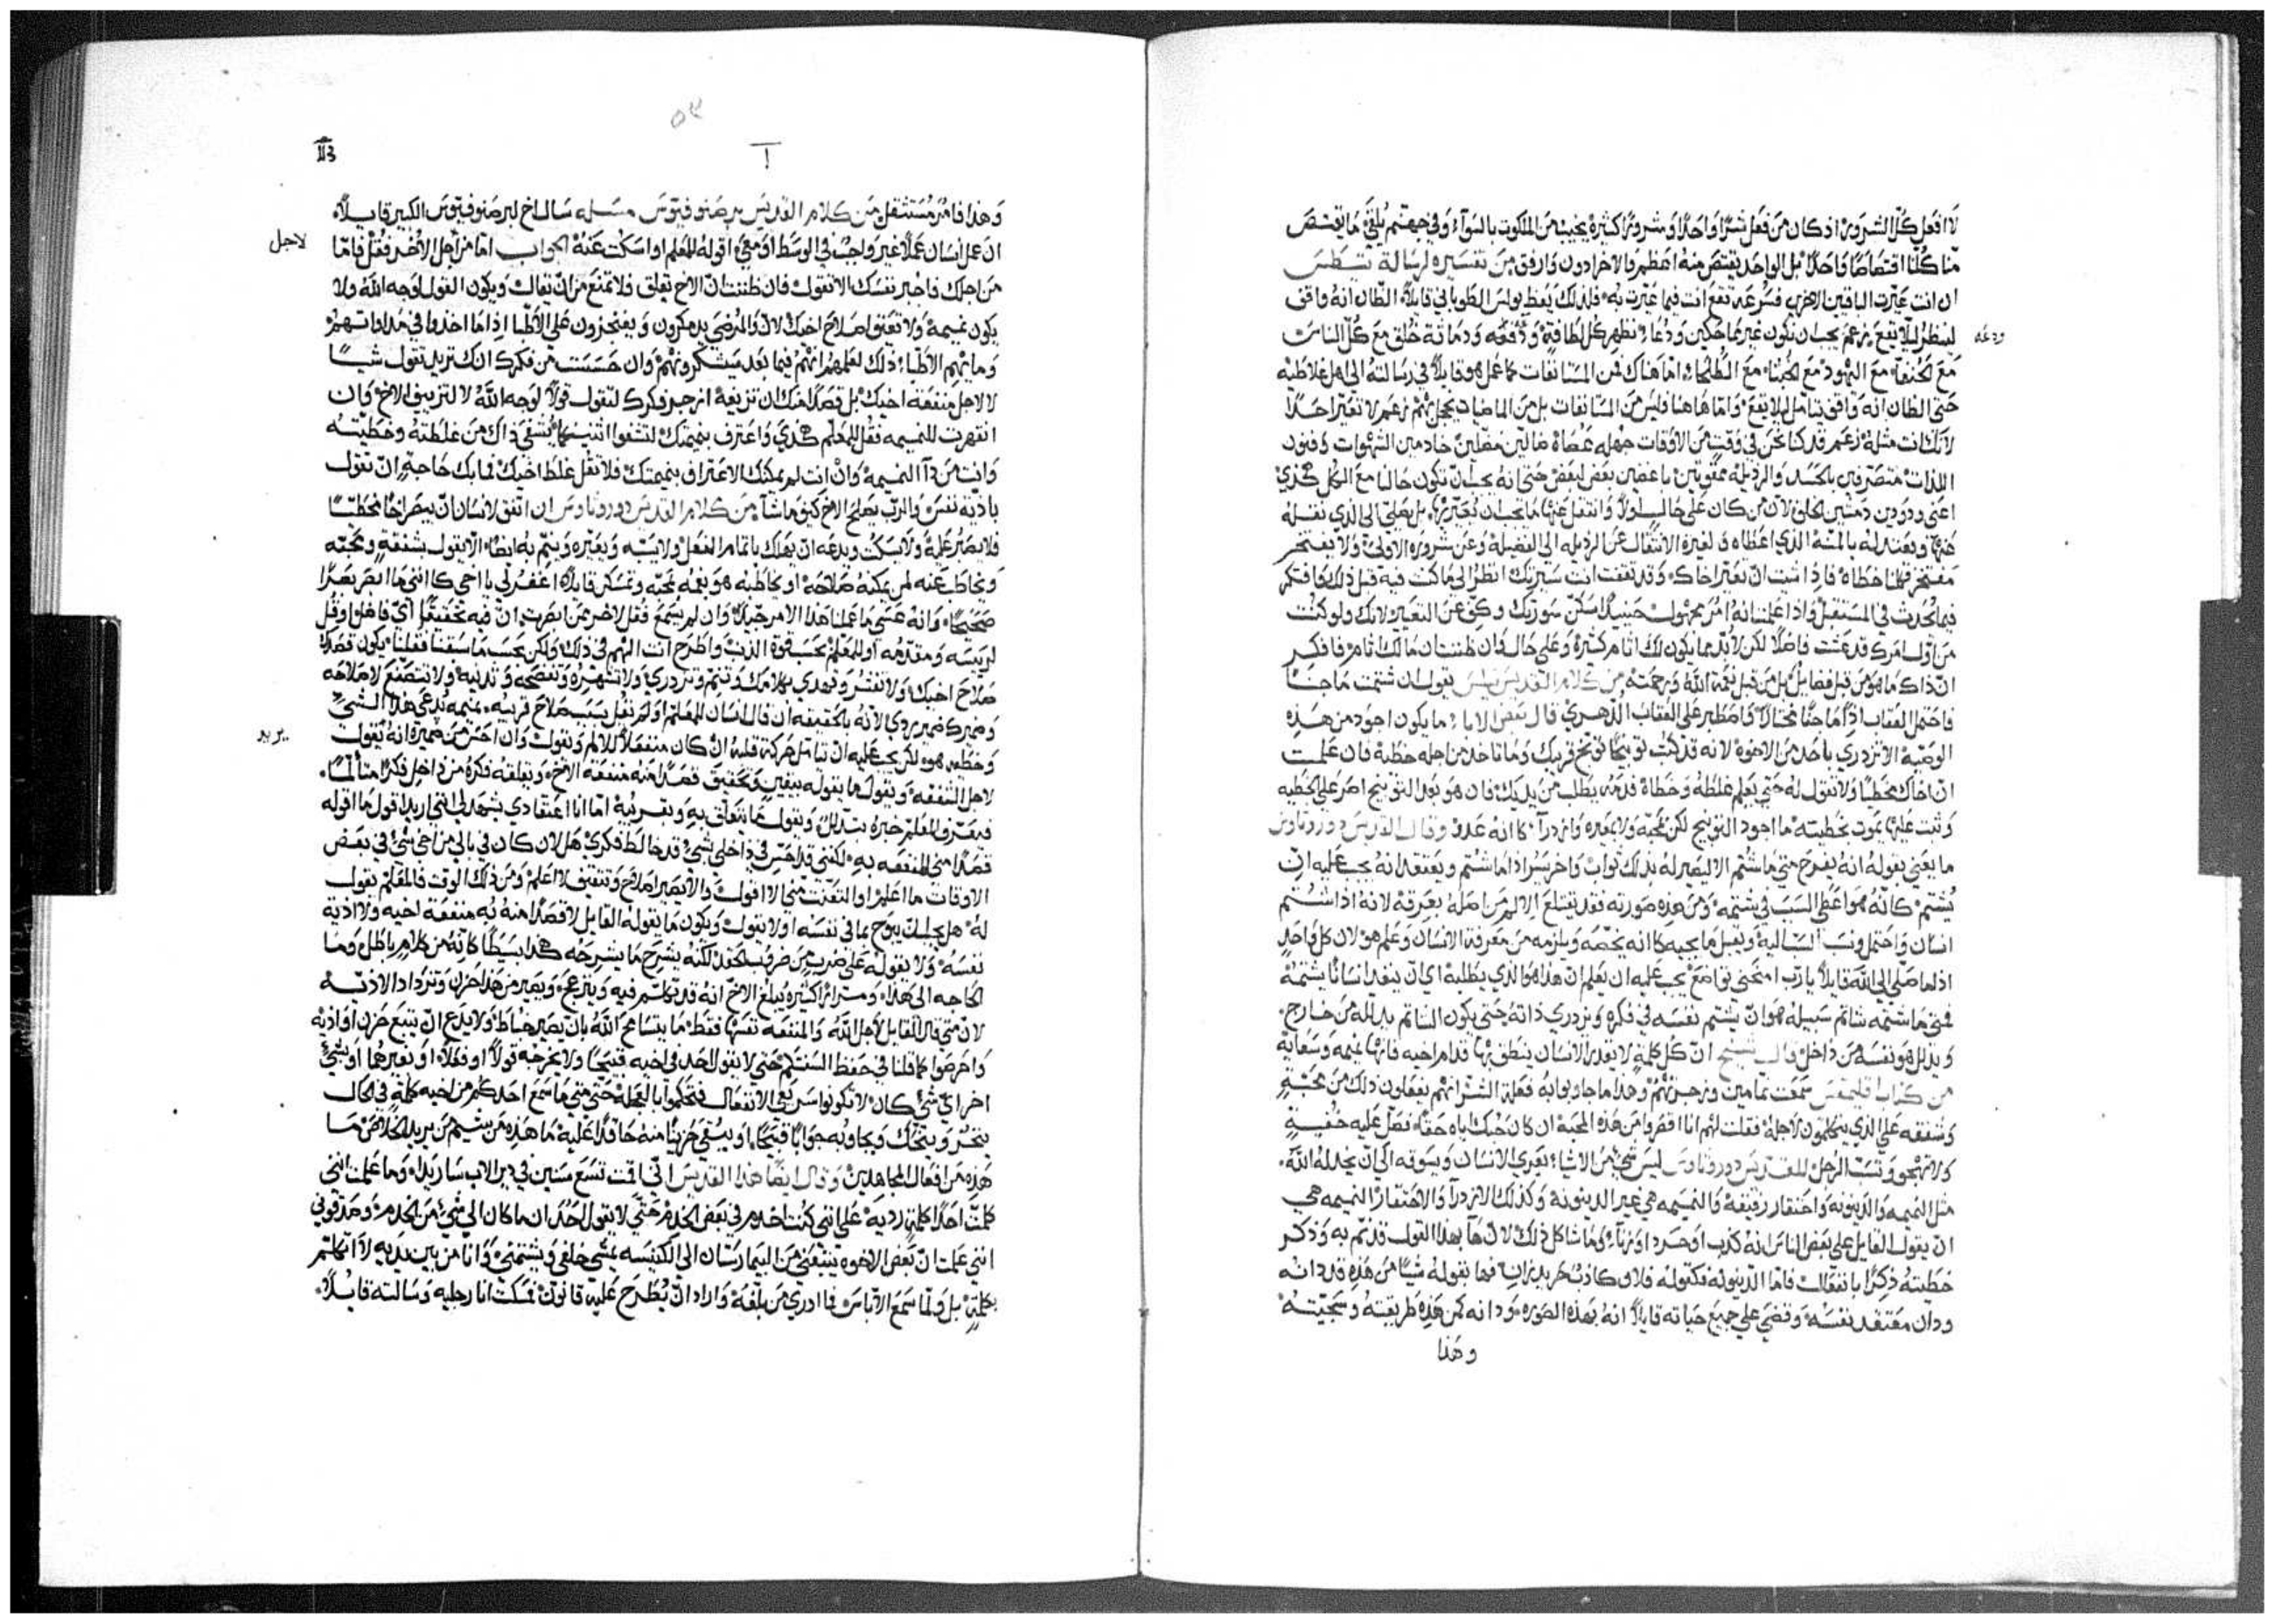 لا افعل كلّ الشرور اذ كان من فعل شرًّا واحدًا وشرورًا كثيرة يخيب من الملكوت بالسوآء وفي جهنّم يُلقى ما يقتصّ
منّا كلّنا اقتصاصًا واحدًا بل الواحد يقتصّ منه اعظم والاخر ادون وارفق من تفسيره لرسالة تيطس
ان انت عيّرت الباقين الاخر فسرعة تقع انت فيما عيّرت به فلذلك يعظ بولس الطوباني قايلاً الظان انه واقف
لينظر ليلا يقع زعم يجب ان نكون غير مماحكين ودعاء نظهر كل لطافة
ودعه
مع الحنفاء مع اليهود مع الخبثاء مع الظلمة امّا هناك فمن المستانفات كما عمل هو قايلاً في رسالته الى اهل غلاطيه
حتى الظان انه واقف يتامل ليلا يقع وامّا هاهنا فليس من المستانفات بل من الماضيات زعم لا تعيّر احدًا
لانك انت مثله زعم قد كنا نحن في وقت من الاوقات جهله عصاة ضالين مضلين خادمين الشهوات وفنون
اللذات متصرفين بالحسد والرذيله ممقوتين باغضين بعض لبعض حتى انه يجب ان نكون حالنا مع الكل هكذي
اعني ودودين دمثين الخلق لان من كان على حال اولاً وانتقل عنها ما يجب ان يعيّر بها بل يصلّي الى الذي نقله
عنها ويعتد له بالمنّة الذي اعطاه ولغيره الانتقال عن الرذيله الى الفضيلة وعن شروره الاولى ولا يفتخر
مفتخر فكلنا خطاة فاذا شيت ان تعيّر اخاك وقد تقفت انت سيرتك انظر الى ما كنت فيه قبل ذلك وافتكر
فيما يحدث في المستقبل واذا علمت انه امر مجهول حينيذ اسكن سورتك وكفّ عن التعيير لانك ولو كنت
من اوّل امرك قد عشت فاضلاً لكن لا بدّ مما يكون لك اثام كثيرة وعلى حال وان ظننت ان ما لك اثام فافكر
انّ ذاك ما هو من قبل فضايل بل من قبل نعمة الله ورحمته من كلام القديس نيلس يقول ان شتمت ماجنًا
فاحتمل العقاب
الوصيّة الا تزدري باحد من الاخوة لانه قد كتب توبيخًا توبّخ قريبك وما تاخذ من اجله خطية فان علمت
انّ اخاك مخطيًا ولا تقول له حتى يعلم غلطه وخطاه فدمه يطلب من يديك فان هو بعد التوبيخ اصر على الخطيه
وثبت عليها يموت بخطيته ما اجود التوبيخ لكن بمحبّة ولا بمعيره وازدرآء كانه عدوّ وقال القديس دوروتاوس
ما يعني بقوله انه يفرح متى ما شُتم الا ليصير له بذلك ثواب واخر يسرّ اذا ما شُتم ويعتقد انه يجب عليه ان
يُشتم كانّه هو اعطى السبب في شتمه ومن هذه صورته فقد يقتلع الالم من اصله بمعرفة لانه اذا شُتم
انسان واحتمل ونسب السبب اليه ويقبل ما يجيه كانه يخصّه ويلزمه من معرفة الانسان وعلم هو لان كل واحد
اذا ما صلّى الى الله قايلاً يا ربّ امنحني تواضع يجب عليه ان يعلم ان هذا هو الذي يطلبه اي ان ينفد انسانًا يشتمه
فمتى ما شتمه شاتم سبيله هو ان يشتم نفسه في فكره ويزدري ذاته حتى يكون الشاتم يذلله من خارج
ويذلل هو نفسه من داخل قال الشيخ انّ كل كلمة لا يقدر الانسان ينطق بها قدام اخيه فانها نميمه وسعاية
من كتاب قليمقس سمعت نمامين وزجرتهم وهذا ما جاوبوا به فعلة الشرّ انهم يفعلون ذلك من محبّة
وشفقه على الذي يتكلمون لاجله فقلت لهم انا اقصروا من هذه المحبة ان كان تحبّك اياه حقًّا فصلّ عليه خفية
ولا تهجو وتسبّ الرجل للقديس دوروتاوس ليس شي من الاشيا يعري الانسان ويسوقه الى ان يخذله الله
مثل النميمه والدينونه واحتقار رفيقه والنميمه هي غير الدينونة وكذلك الازدرآ والاحتقار النميمه هي
ان يقول القايل على بعض الناس انه كذب او حرد او زنا او ما شاكل ذلك لان هذا بهذا القول قد نمّ به وذكر
خطيته ذكرًا بانفعال فامّا الدينونه فكقوله فلان كاذب حرد زانٍ فما بقوله شيًا من هذه قد دانه
ودان معتقد نفسه وقضى على جميع حياته قايلاً انه بهذه الصوره ودانه كمن هذه طريقته وسجيّته
وهذا
113
وهذا فامر مستثقل من كلام القديس برصنوفيوس مسله سال اخ لبرصنوفيوس الكبير قايلاً
ان عمل انسان عملاً غير واجب في الوسط او معي اقوله للمعلم او اسكت عنه الجواب امّا من اجل الاخر فقُل فامّا
لاجل
من اجلك فاجبر نفسك الا تقول فان ظننت انّ الاخ يقلق فلا تمتنع من ان تقال ويكون القول لوجه الله ولا
يكون نميمة ولا تعيق اصلاح اخيك لانّ والمرضى يدمكرون ويضجرون على الاطبا اذا ما اخذوا في مداواتهم
وما يهم الاطبا ذلك لعلمهم انهم فيما بعد سيشكرونهم وان حسست من فكرك انك تريد تقول شيًا
لا لاجل منفعة اخيك بل قصدًا منك ان تزيفه ازجر فكرك لتقول قولاً لوجه الله لا لتزييف الاخ وان
انقهرت للنميمه فقُل للمعلم هكذي واعترف بنميمتك لتشفوا اثنينكما يُشفى ذاك من غلطته وخطيته
وانت من دآ النميمه وان انت لم يمكنك الاعتراف بنميمتك فلا تقل غلط اخيك فما بك حاجة ان تقول
باذية نفس والربّ يصلح الاخ كيف ما شآ من كلام القديس دوروتاوس ان اتفق لانسان انّ يبصر اخًا مخطيًا
فلا يصبر عليه ولا يسكت ويدعه ان يهلك باتمام الفعل ولا يسبّه ويعيّره وينمّ به ايضًا الا يقول بشفقة ومحبّه
ويخاطب عنه لمن يمكنه صلاحه او يخاطبه هو بعينه بمحبّه وتمسكن قايلاً اغفر لي يا اخي كانني ما ابصر بصرًا
صحيحًا وانه عسى ما عملنا هذا الامر جيّدًا وان لم يسمع فقل لاخر ممن ابصرت انّ فيه تحققًا اي فاضل او قُل
لرييسه ومقدّمه او للمعلم بحسب قوة الذنب واطرح انت الهمّ في ذلك ولكن بحسب ما سبقنا فقلنا يكون قصدك
صلاح اخيك ولا تفتش وتهدي بكلامك وتنمّ وتزدري ولا تشهره وتفضحه وتدينه ولا تتصنّع لاصلاحه
وضميرك ضمير ردي لانه بالحقيقه ان قال انسان للمعلم او لم يقل بسبب صلاح قريبه نميمه تُدعى هذا الشي
وخطيه هو لكن يجب عليه ان يتامل حركة قلبه ان كان منفعلاً للالم ويقول وان احسّ من ضميره انه يقول
يريد
لاجل الشفقه ويقول ما يقوله بتفتيش وتحقيق قصدًا منه منفعة الاخ ويقلقه فكره من داخل فكرًا متالمًا
فيعترف للمعلم خبره بتذلل ويقول عمّا يتعلق به وبقريبه امّا انا اعتقادي يشهد لي انني اريد اقول ما اقوله
قصدًا مني المنفعه به لكنني قد احسّ في داخلي شي قد خالط فكري هل لان كان في بالي من اخي شي في بعض
الاوقات ما اعلم او التعنّت مني الا اقول والا يصير اصلاح وتثقيف لا اعلم ومن ذلك الوقت فالمعلم يقول
له هل يجب ان يبوح بما في نفسه او لا يقول ويكون ما يقوله القايل لا قصدًا منه به منفعة اخيه ولا اذية
نفسه ولا يقوله على ضرب من ضروب الحقد لكنّه يشرح ما يشرحه هكذا بسيطًا كانه من كلام باطل وما
الحاجه الى هذا ومرارًا كثيرة يبلغ الاخ انه قد تكلم فيه وينزعج ويصير من هذا حزن وتزداد الاذيه
لانّ متى قال القايل لاجل الله والمنفعه نفسها فقط ما يتسامح الله بان يصير خباط ولا يدع ان يتبع حزن او اذية
واحرصوا كما قلنا في حفظ السنتكم حتى لا يقول احد في اخيه قبيحًا ولا يجرحه قولاً او فعلاً او بغيرهما او بشي
اخر ايّ شي كان لا تكونوا سريعي الانفعال فتحكموا بالعجلة حتى متى ما سمع احدكم من اخيه كلمة في الحال
يتحرّد ويتحرّك ويجاوبه جوابًا قبيحًا او يبقى حزينًا منه حاقدًا عليه ما هذه من شيم من يريد الخلاص ما
هذه من افعال المجاهدين وقال ايضًا هذا القديس انّي اقمت تسع سنين في دير الاب ساريدا وما علمت انني
كلمت احدًا كلمة رديه على انني كنت اخدم في بعض الخدم حتى لا يقول احد ان ما كان الي شي من الخدم وصدقوني
انني علمت انّ بعض الاخوه يتبعني من البيمارستان الى الكنيسه يمشي خلفي ويشتمني وانا من بين يديه لا اتكلّم
بكلمة بل ولمّا سمع الاباس ما ادري من بلّغه واراد ان يطرح عليه قانونًا فمسكت انا رجليه وسالته قايلاً